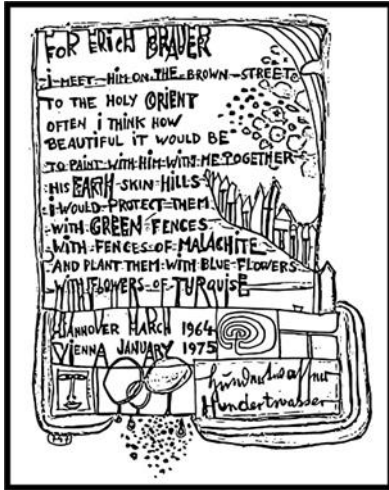 FOR ERICH BRAUER
i MEET HIM ON THE BROWN STREET
TO THE HOLY ORIENT
OFTEN i THINK HOW
BEAUTIFUL IT WOULD BE
TO PAINT WITH HIM WITH ME TOGETHER
HIS EARTH SKIN HILLS
i WOULD PROTECT THEM
WITH GREEN FENCES
WITH FENCES OF MALACHITE
AND PLANT THEM WITH BLUE FLOWERS
WITH FLOWERS OF TURQUISE
HANNOVER MARCH 1964
VIENNA JANUARY 1975
Hundertwasser